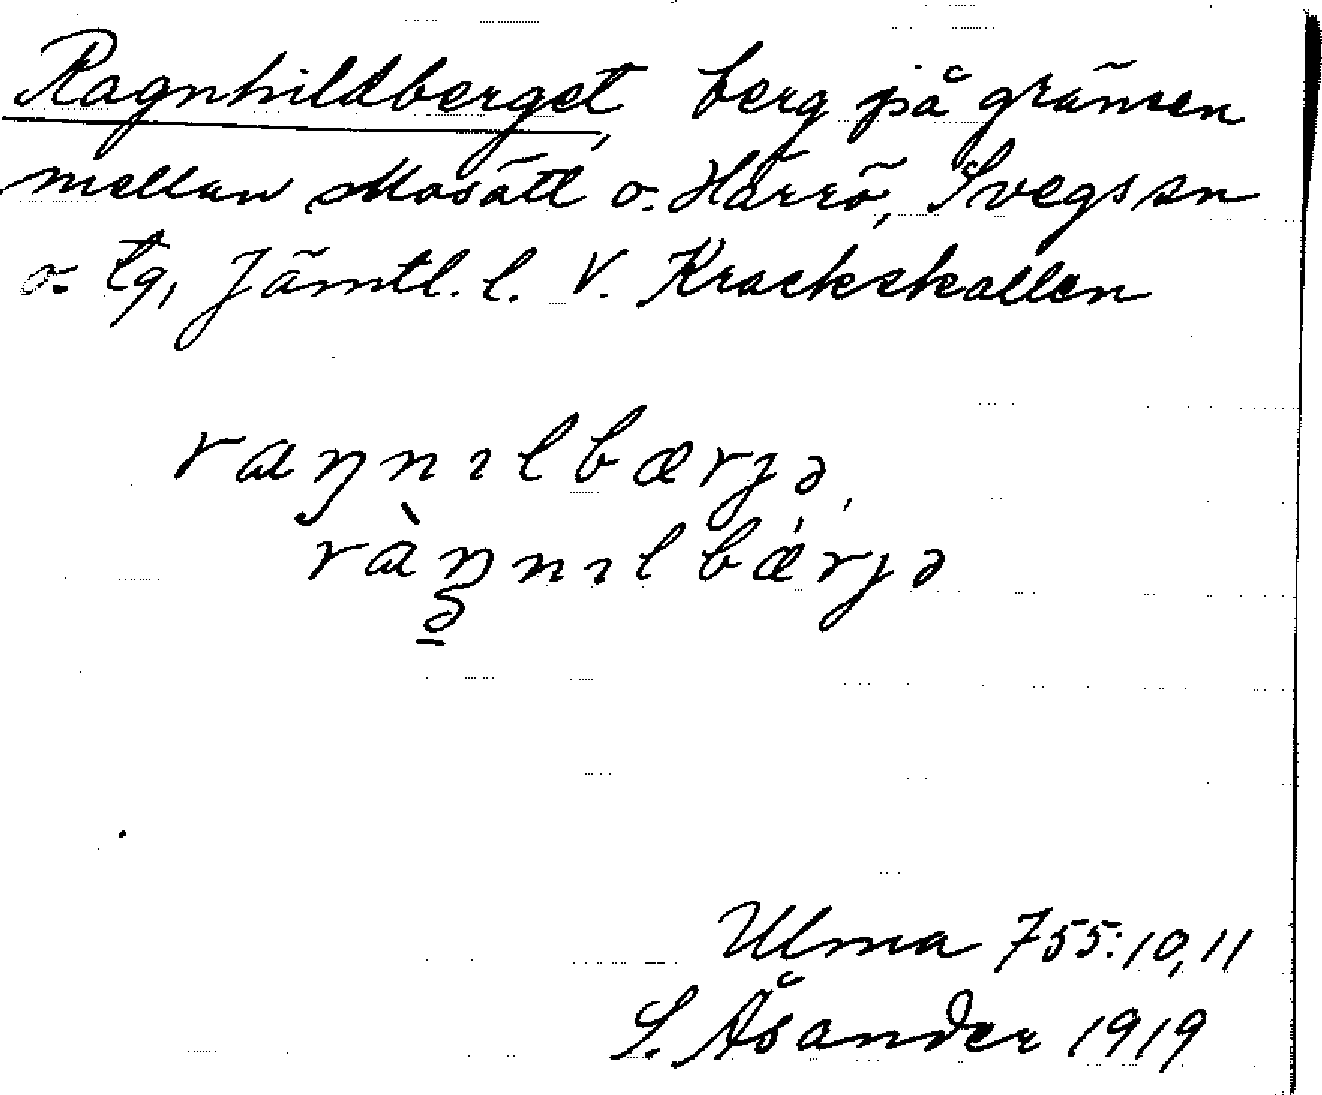 Ragnhildberget, berg på gränsen
mellan Mosätt o. Härrö, Svegs sn
o. tg, Jämtl. l. V. Krackskallen
raŋnılbærȷə,
ràŋnılbǽrȷə
Ulma 755:10,11
S. Åsander 1919